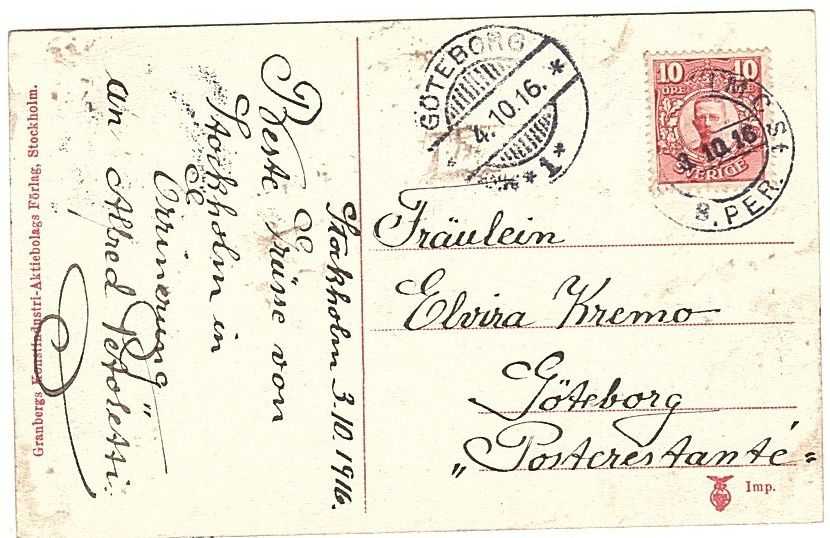 Granbergs Konstindustri-Aktiebolags Förlag, Stockholm.
Stockholm 3.10.1916.
Beste Grüsse von
Stockholm in
Errinerung
an Alfred
GÖTEBORG
4.10.16.
* 1 *
10 10
ÖRE
SVERIGE
3.10.16
8.PER.
St
Fräulein
Elvira Kremo
Göteborg
„Postcrestanté"
Imp.